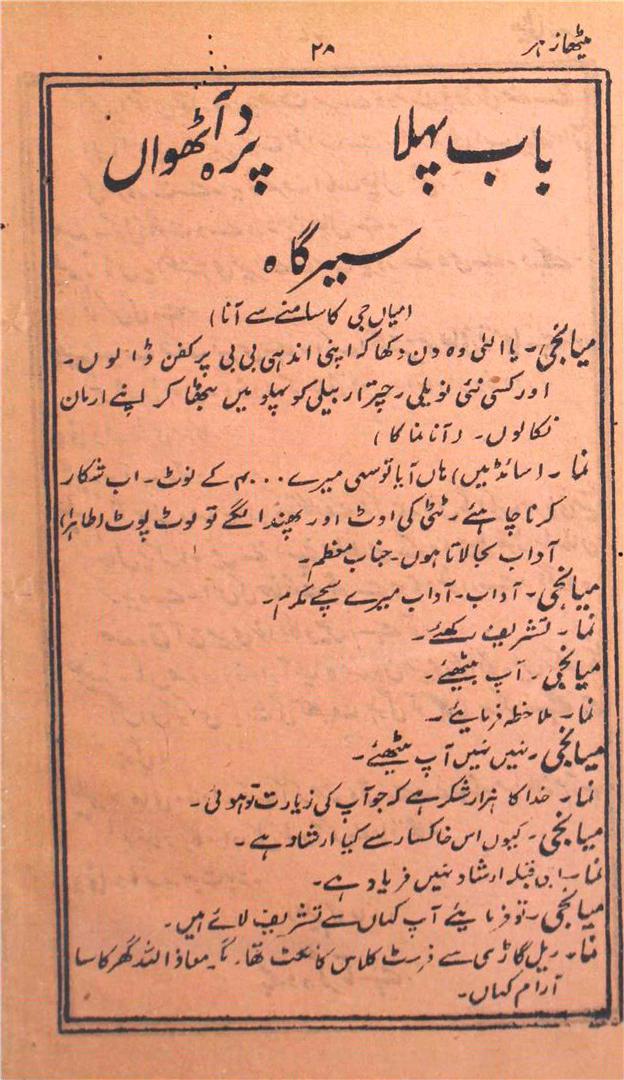 میٹھا زہر
۲۸
باب پہلا
پردہ آٹھواں
سیرگاہ
(میاں جی کا سامنے سے آنا)
میانجی۔ یا الٰہی وہ دن دکھا کہ اپنی اندھی بی بی پر کفن ڈالوں۔
اور کسی نئی نویلی۔ چتر اربیلی کو پہلو میں بٹھا کر اپنے ارمان
نکالوں۔ (آنا نما کا)
نما۔ (سائڈ میں) ہاں آیا تو سہی میرے ۴۰۰ کے نوٹ۔ اب شکار
کرنا چاہئے۔ ٹٹی کی اوٹ اور پھندا لگے تو لوٹ پوٹ (ظاہرا)
آداب بجا لاتا ہوں۔ جناب معظم۔
میانجی۔ آداب۔ آداب میرے سچے مکرم۔
نما۔ تشریف رکھئے۔
میانجی۔ آپ بیٹھئے۔
نما۔ ملاحظہ فرمایئے۔
میانجی۔ نہیں نہیں آپ بیٹھئے۔
نما۔ خدا کا ہزار شکر ہے کہ جو آپ کی زیارت تو ہوئی۔
میانجی۔ کیوں اس خاکسار سے کیا ارشاد ہے۔
نما۔ اجی قبلہ ارشاد نہیں فریاد ہے۔
میانجی۔ تو فرمایئے آپ کہاں سے تشریف لائے ہیں۔
نما۔ ریل گاڑی سے فرسٹ کلاس کا ٹکٹ تھا۔ معاذ اللہ گھر کا سا
آرام کہاں۔